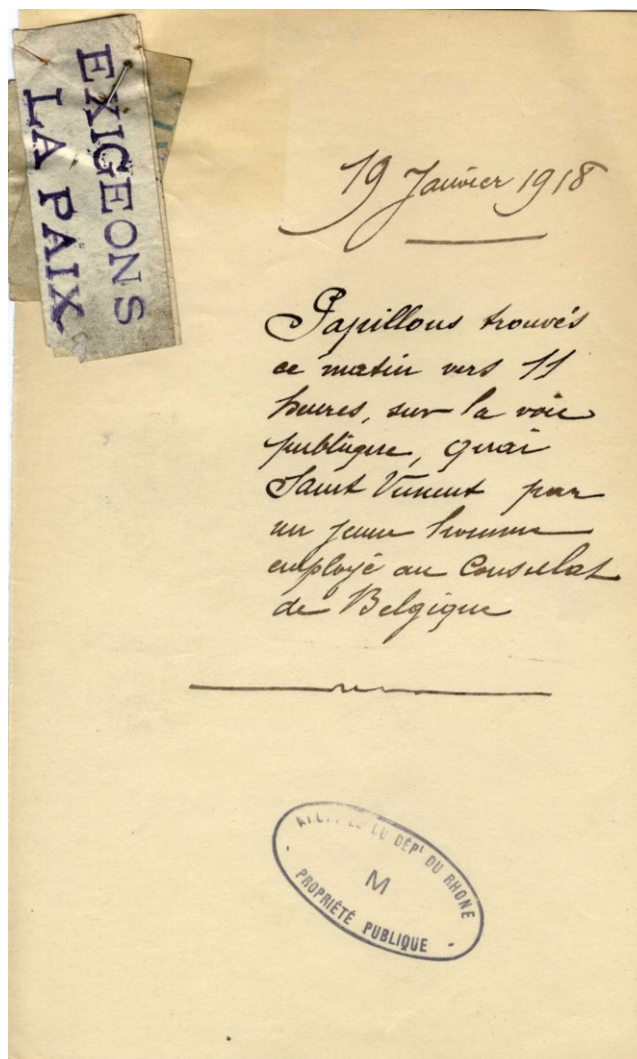 EXIGEONS
LA PAIX
19 Janvier 1918
Papillons trouvés
ce matin vers 11
heures, sur la voie
publique, quai
Saint Vincent par
un jeune homme
employé au Consulat
de Belgique
DU DÉPT DU RHONE
M
PROPRIÉTÉ PUBLIQUE